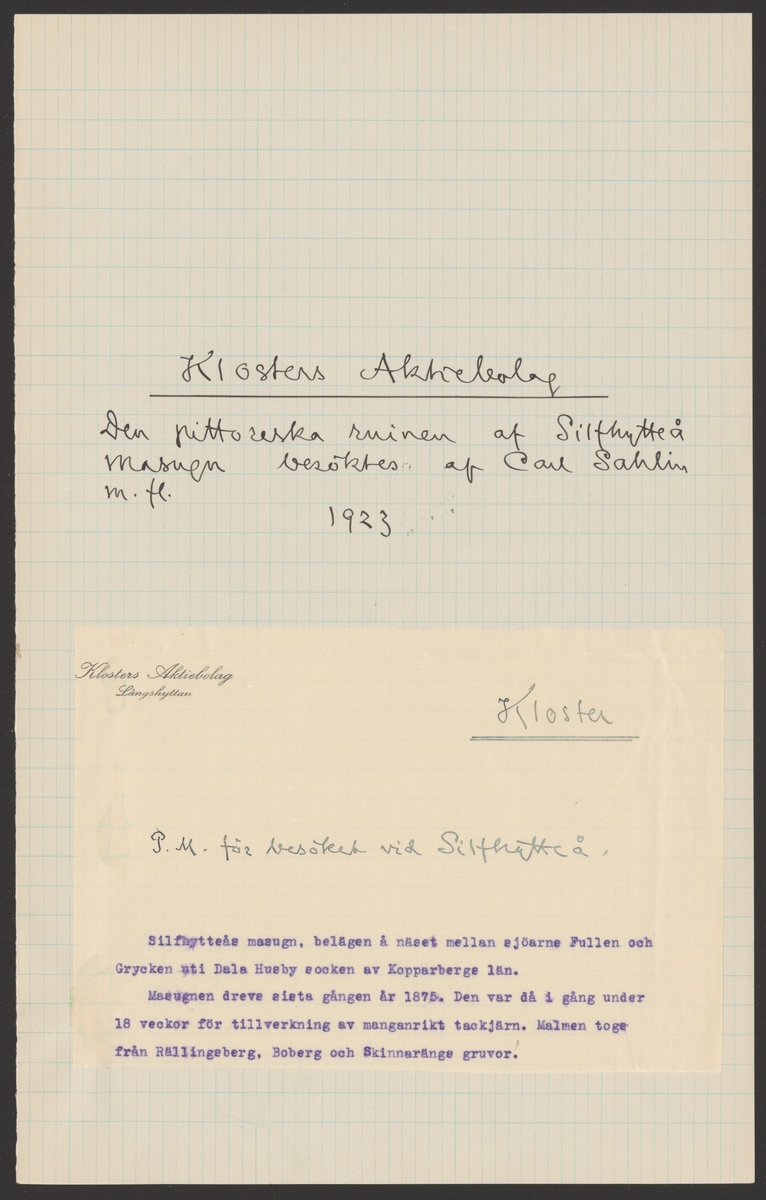 Klosters Aktiebolag
Den pittoreska ruinen af Silfhytteå
masugn besöktes af Carl Sahlin
m. fl.
1923
Klosters Aktiebolag
Långshyttan
Kloster
P. M. för besöket vid Silfhytteå.
Silfhytteås masugn, belägen å näset mellan sjöarne Fullen och
Grycken uti Dala Husby socken av Kopparbergs län.
Masugnen drevs sista gången år 1875. Den var då i gång under
18 veckor för tillverkning av manganrikt tackjärn. Malmen togs
från Rällingsberg, Boberg och Skinnarängs gruvor.